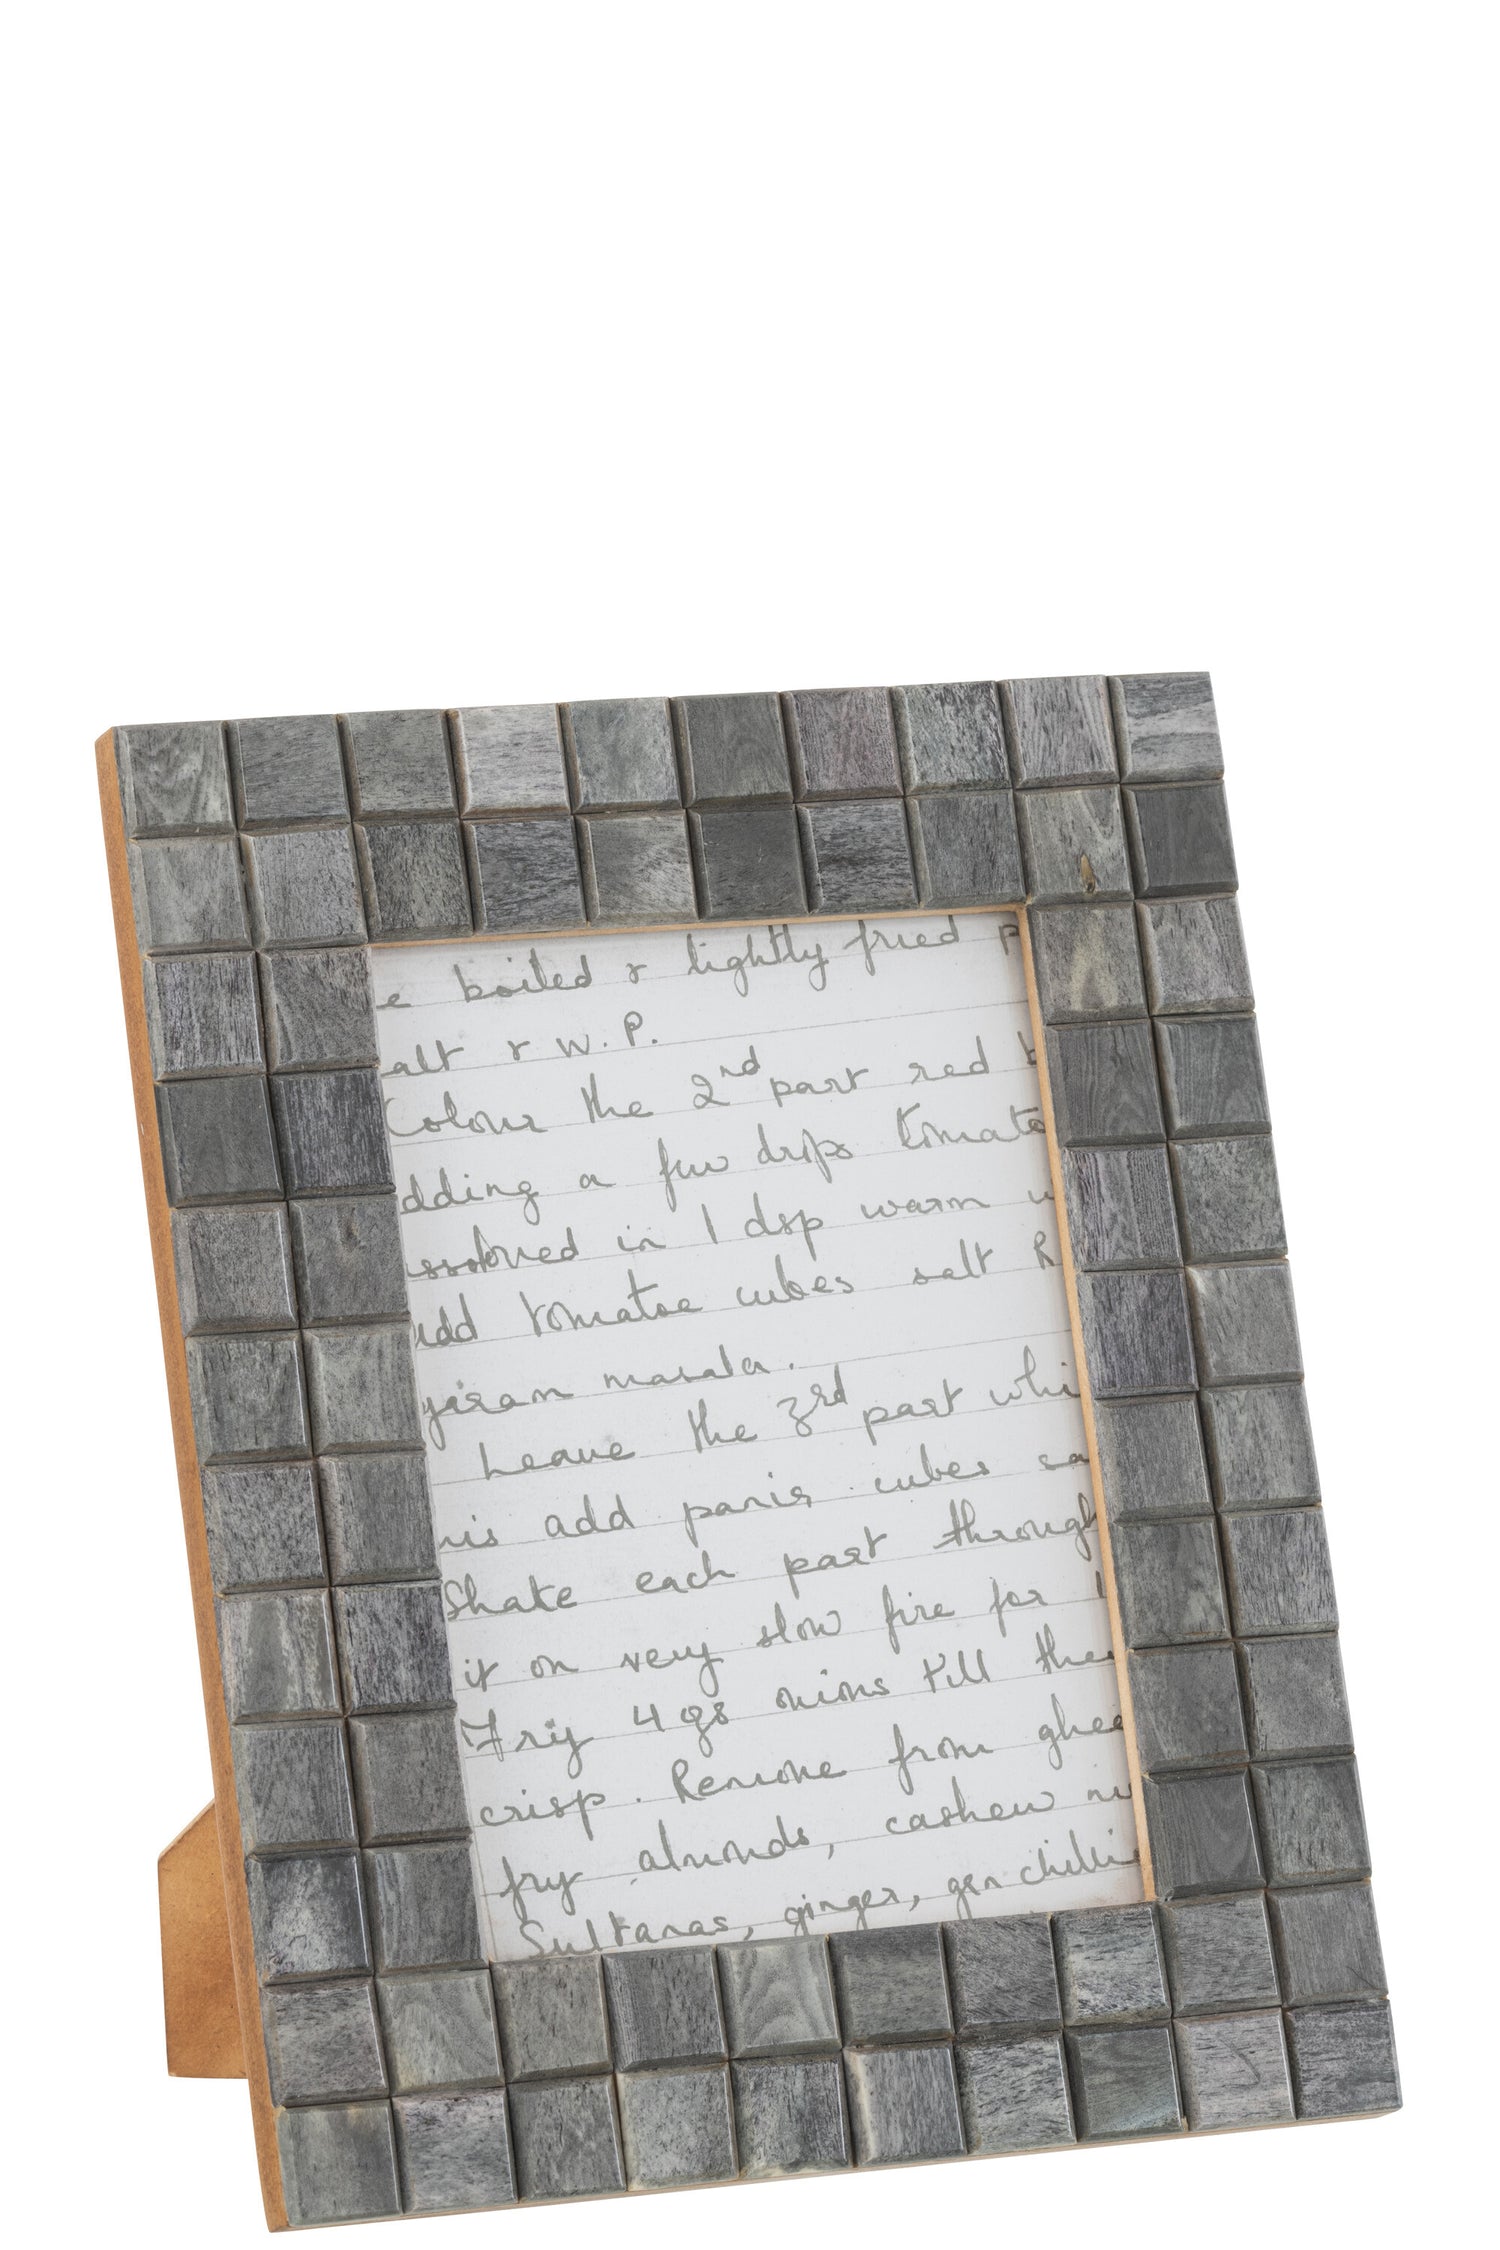 e boiled & lightly fried p
alt & W.P.
Colour the 2nd part red b
dding a few drops tomato
ssolved in 1 dsp warm w
add tomatoe cubes salt R
garam masala.
Leave the 3rd part whi
his add panir cubes sa
Shake each part through
it on very slow fire for 1
Fry 4 ozs onions till the
crisp. Remove from ghee
fry almonds, cashew nu
Sultanas, ginger, gen chilli